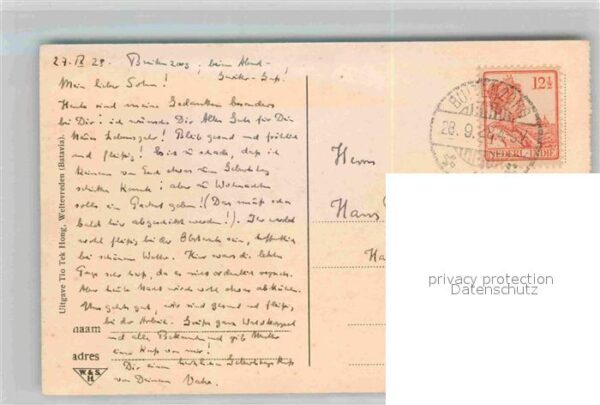 27. IX 29. Buitenzorg, beim Abend-
Mein lieber Sohn!
Heute sind meine Gedanken besonders
bei Dir! ich wünsche Dir Alles Gute für Dein
Neues Lebensjahr! Bleib gesund und fröhlich
und fleißig! Es ist schade, dass ich
Keinem von Euch etwas zum Geburtstag
schicken konnte! aber zu Weihnachten
solls ein Packet geben! (Das muß schon
bald hier abgeschickt werden!). Ihr werdet
wohl fleißig bei der sein, hoffentlich
bei schönem Wetter. Hier waren die letzten
Tage sehr heiß,
Aber heute Nacht wird wohl etwas abkühlen.
Uns gehts gut, wir sind gesund und fleißig
bei der Arbeit. Grüße ganz
und alle Bekannte und gib Mutter
einen Kuß von mir!
Dir einen herzlichen Geburtstags Kuß
von Deinem Vater.
naam
adres
W&S
H
Uitgave Tio Tek Hong, Weltevreden (Batavia).
Herrn
Hans
12½
NEDERL-INDIE
28.9.29
privacy protection
Datenschutz